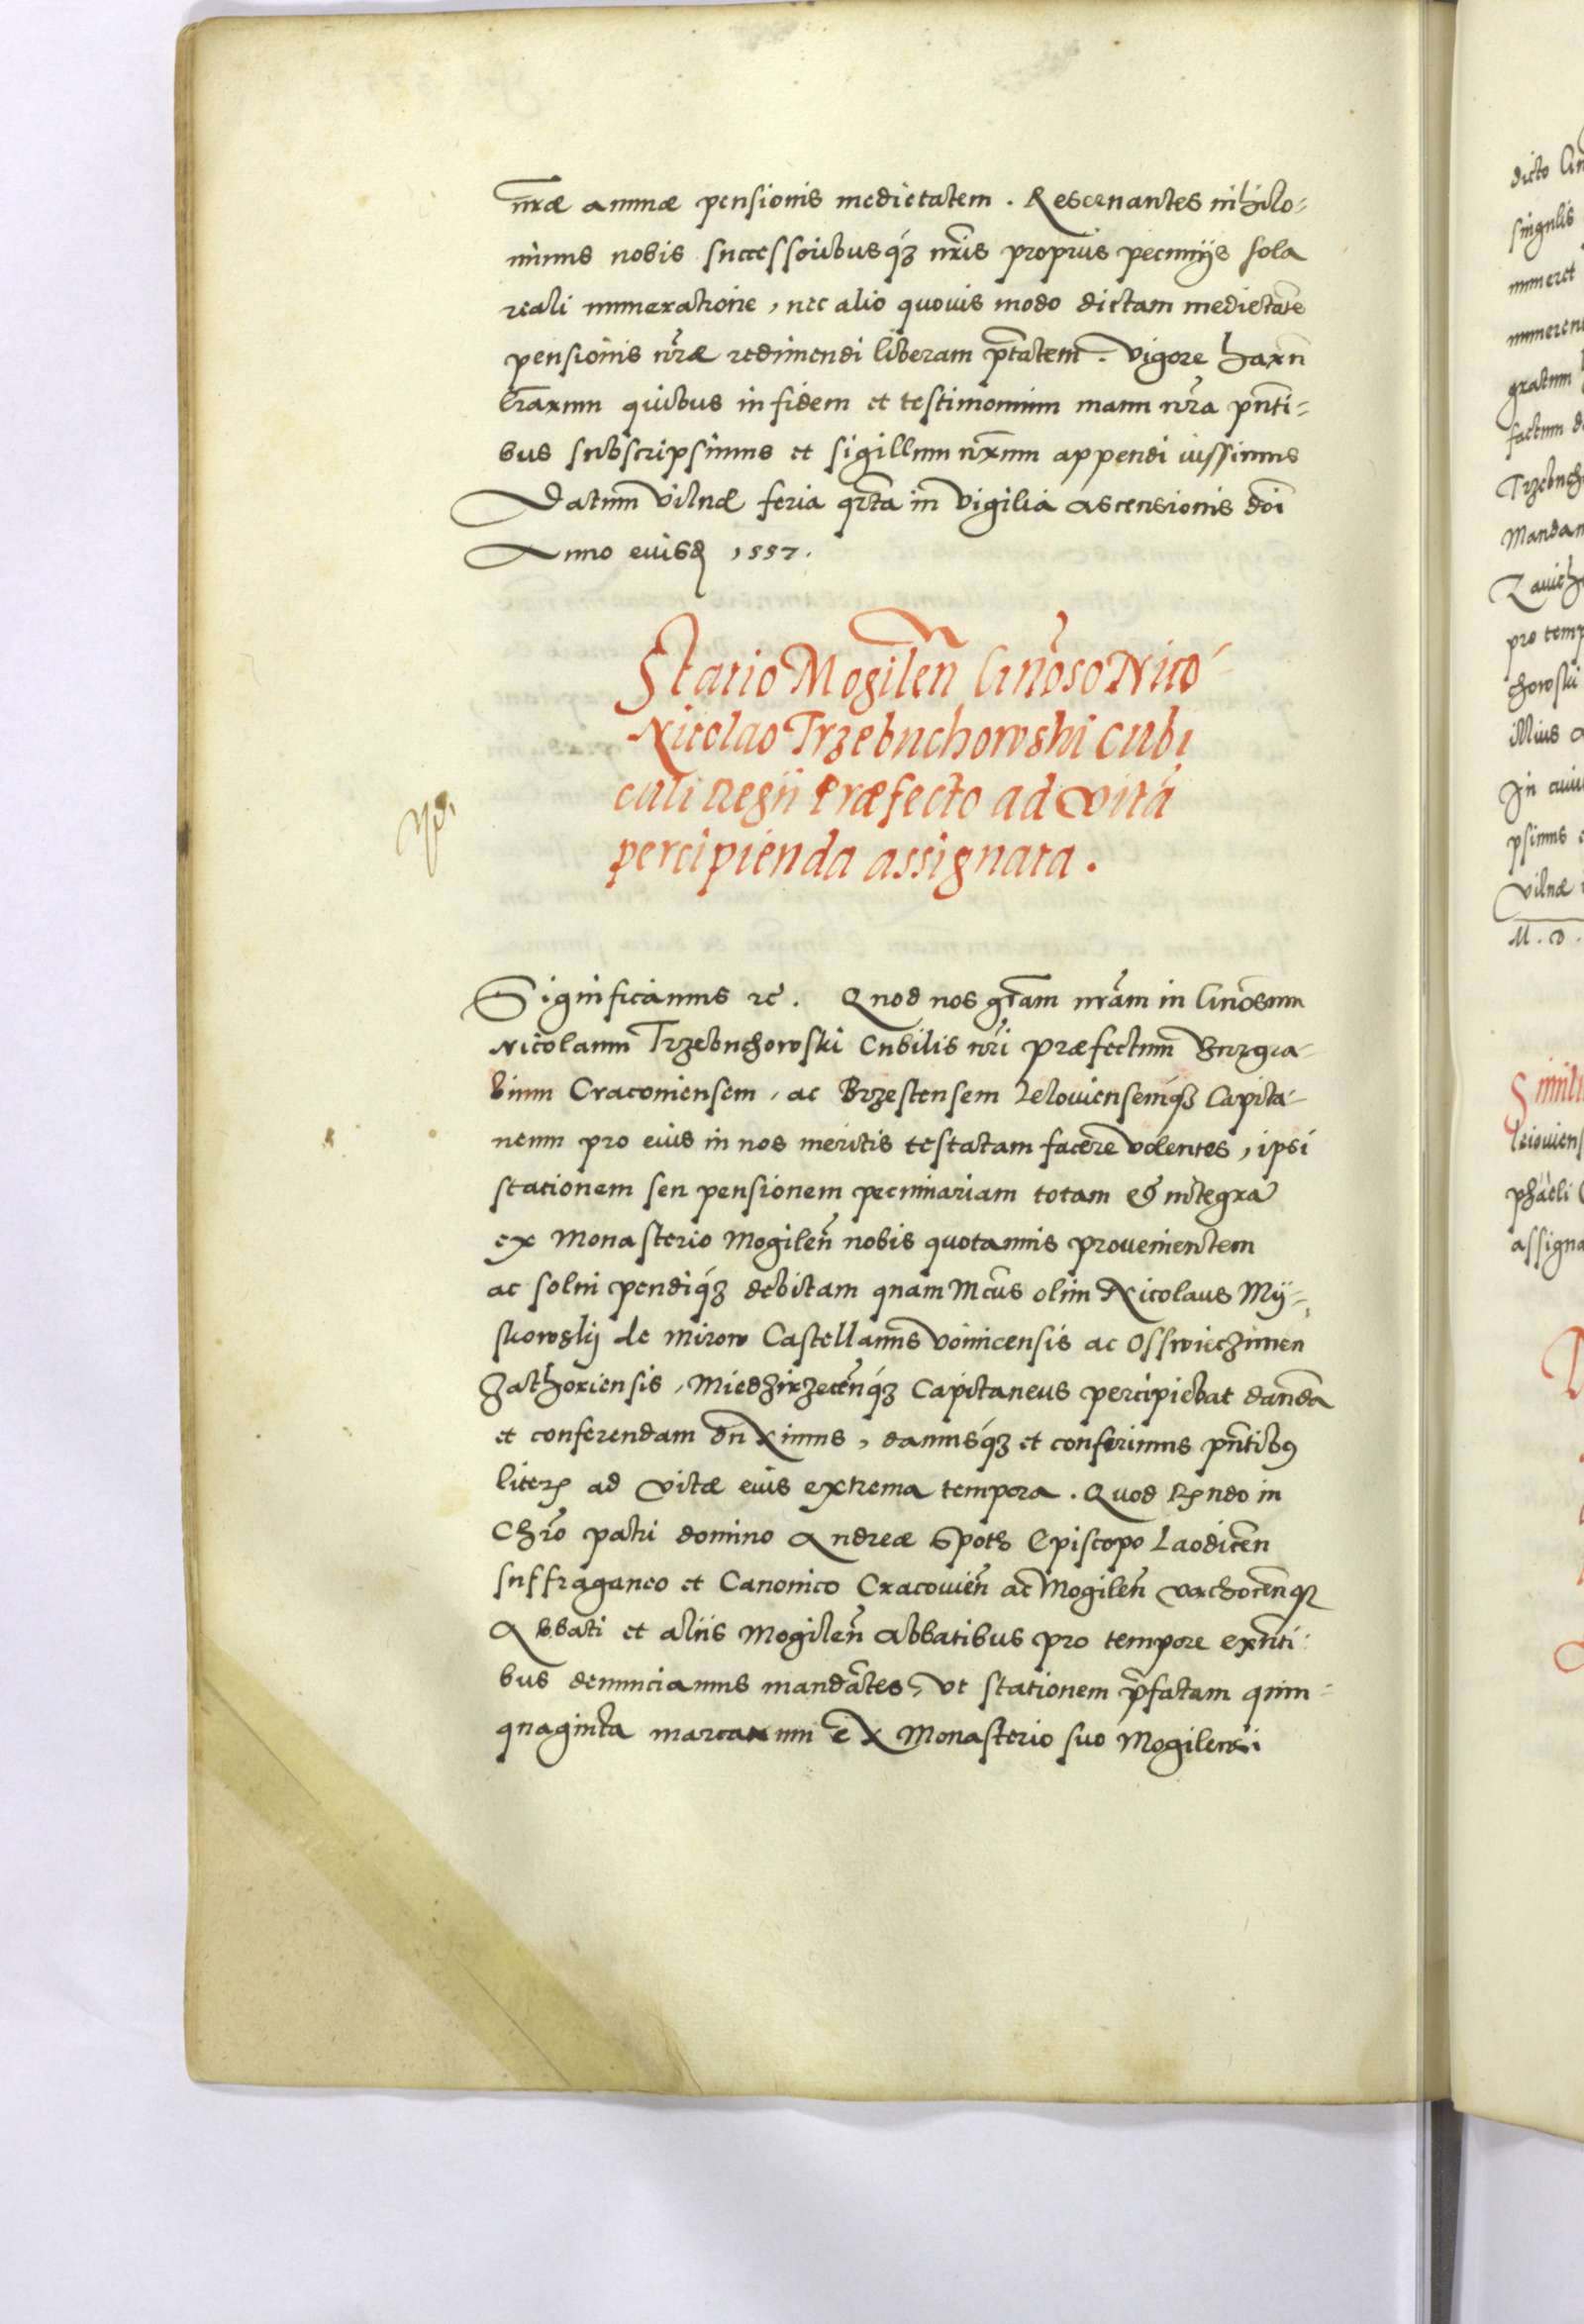 nr̃æ annuæ pensionis medietatem. Reseruantes nihilo=
minus nobis successoribusq́ꝫ nr̃is proprijs pecunijs sola
reali numeratione, nec alio quouis modo dictam medietatē
pensionis nr̃æ redimendi liberam p̃tatem. Vigore harũ
lr̃arum quibus in fidem et testimonium manu nr̃a pñti=
bus subscripsimus et sigillum nr̃um appendi iussimus
Datum Vilnæ feria qrta in Vigilia ascensionis doi
Anno eiusd 1557.
Statio Mogileñ Gñoso Nico
Nicolao Trzebuchowski Cubi
culi Regii Præfecto ad vitã
percipienda assignata.
Significamus ꝛc. Quod nos gr̃am nr̃am in Gñosum
Nicolaum Trzebuchowski Cubilis nr̃i præfectum Burgra-
bium Cracouiensem, ac Brzestensem Leloviensemq́ꝫ Capita-
neum pro eius in nos meritis testatam facere volentes, ipsi
stationem seu pensionem pecuniariam totam & integrã
ex Monasterio Mogileñ nobis quotannis prouenientem
ac solui pendiq́ꝫ debitam quam Mcũs olim Nicolaus My=
skowskij de Mirow Castellanus Voinicensis ac Osswieczimen
Zathoriensis, Miedzirzeceñq́ꝫ Capitaneus percipiebat dandã
et conferendam duximus, damusq́ꝫ et conferimus pñtibꝰ
literꝭ ad vitæ eius extrema tempora. Quod Rꝭndo in
Chr̃o patri domino Andreæ Spoth Episcopo Laodiceñ
suffraganeo et Canonico Cracouieñ ac Mogileñ Varchoceñqꝫ
Abbati et aliis Mogileñ Abbatibus pro tempore exñti=
bus denunciamus mandãtes, vt stationem p̃fatam quin=
quaginta marcarum ex Monasterio suo Mogilensi
dicto
singulis
numeret
factum
pro temp
illius
In cuius
psimus
Vilnæ
M. D.
phaeli
assigna